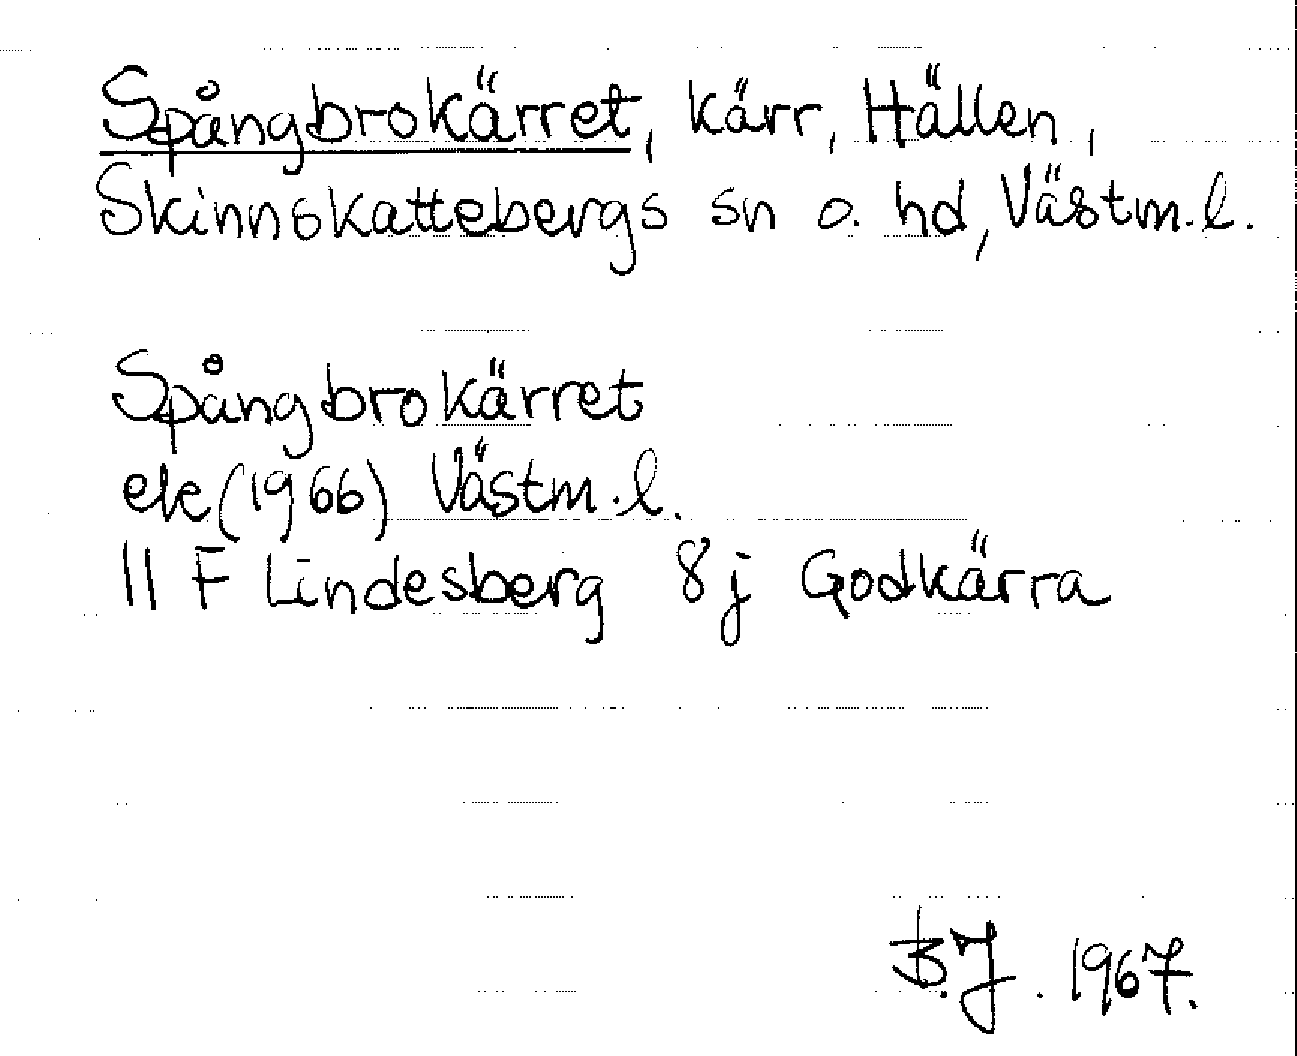 Spångbrokärret, kärr, Hällen,
Skinnskattebergs sn o. hd, Västm.l.
Spångbrokärret
ek (1966) Västm.l.
11 F Lindesberg 8j Godkärra
B.J. 1967.